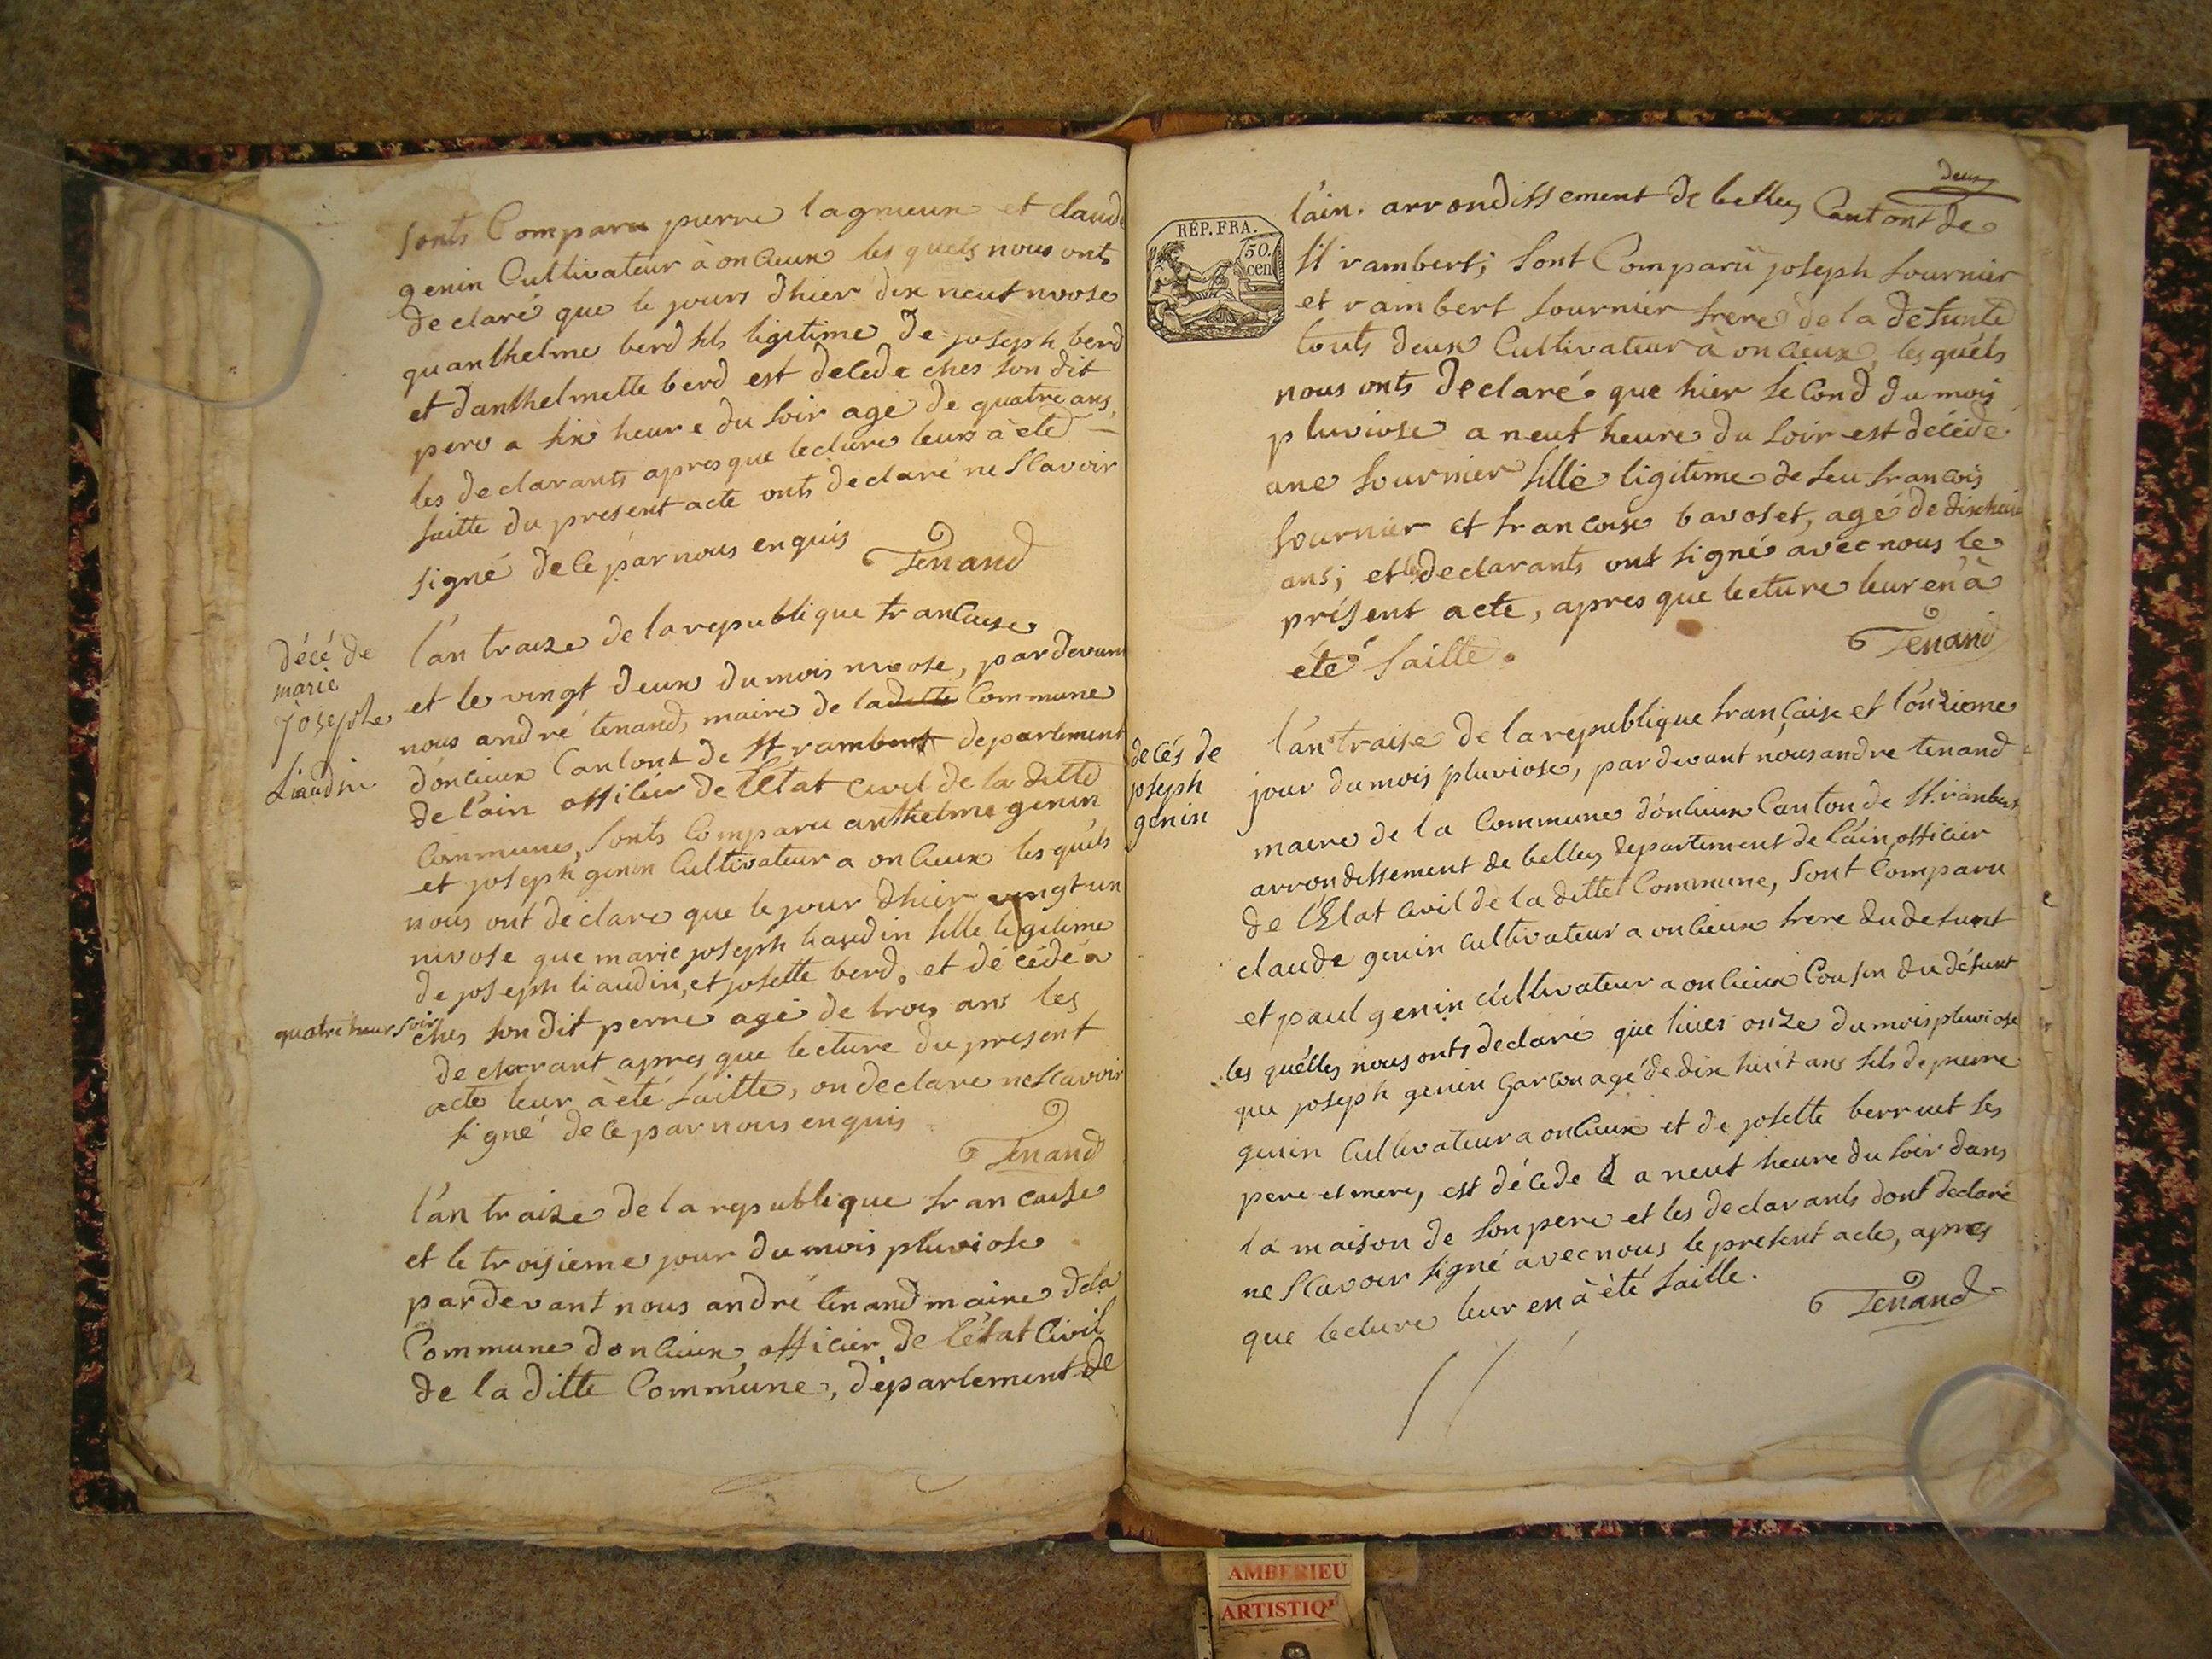 sonts Comparu pierre lagnieux et claude
genin Cultivateur à oncieux les quels nous onts
declaré que le jours dhier dix neuf nivose
quanthelme berd fils ligitime de joseph berd
et danthelmette berd est decede ches son dit
pere a six heure du soir age de quatre ans,
les declarants apres que lecture leurs à eté
faitte du present acte onts declaré ne scavoir
signé de ce par nous enquis
Tenand
décé de
marie
josephe
Liaudin
l'an traize de la republique francaise
et le vingt deux du mois nivose, par devant
nous andré tenand, maire de la ditte Commune
d'oncieux Cantont de St rambert departement
de l'ain officier de l'Etat Civil de la ditte
Commune, sonts Comparu anthelme genin
et joseph genin Cultivateur a oncieux les quels
nous ont déclare que le jour dhier vingt un
nivose que marie joseph liaudin fille ligitime
de joseph liaudin, et josette berd, et décédé a
quatre heur soir
ches son dit perre agé de trois ans les
declarant apres que lecture du present
acte leur à été faitte, on declare ne scavoir
signé de ce par nous enquis
Tenand
l'an traize de la republique francaise
et le troisieme jour du mois pluviose
par devant nous andré tenand maire dela
Commune d'oncieux, officier de l'état Civil
de la ditte Commune, département de
deux
RÉP. FRA.
50.
cen
l'ain. arrondissement de belley Cantont de
St rambert; sont Comparu joseph fournier
et rambert fournier frere de la defunte
touts deux Cultivateur à oncieux, les quels
nous onts declaré que hier second du mois
pluviose a neuf heure du soir est décédé
ane fournier fille ligitime de feu francois
fournier et francoise bavoset, agé de dix huit
ans; et les declarants ont signé avec nous le
présent acte, apres que lecture leur en à
eté faitte.
Tenand
decés de
joseph
genin
l'an traise de la republique française et l'onzieme
jour du mois pluviose, par devant nous andre tenand
maire de la Commune d'oncieux Canton de St. rambert
arrondissement de belley departement de l'ain, officier
de l'Etat Civil de la ditte Commune, sont Comparu
claude genin cultivateur a oncieux frere du defunt
et paul genin cultivateur a oncieux Cousin du défunt
les quélles nous onts declaré que hier onze du mois pluviose
que joseph genin garcon agé de dix huit ans fils de pierre
genin Cultivateur a oncieux et de josette berruet ses
pere et mere, est décede a neuf heure du soir dans
la maison de son pere et les declarants dont declaré
ne scavoir signé avec nous le present acte, apres
que lecture leur en à été faitte.
Tenand
AMBERIEU
ARTISTIQ